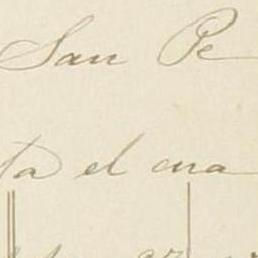 San Pe
ta el cua